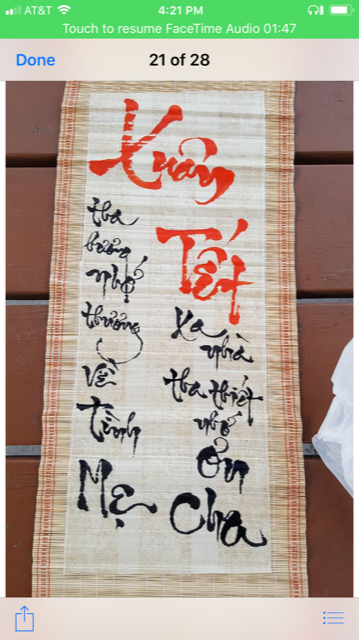 AT&T 4:21 PM
Touch to resume FaceTime Audio 01:47
Done 21 of 28
Xuân
Tết
tha
hương
nhớ
thương
về
tình
Mẹ
Xa
nhà
tha thiết
nhớ
Ơn
Cha